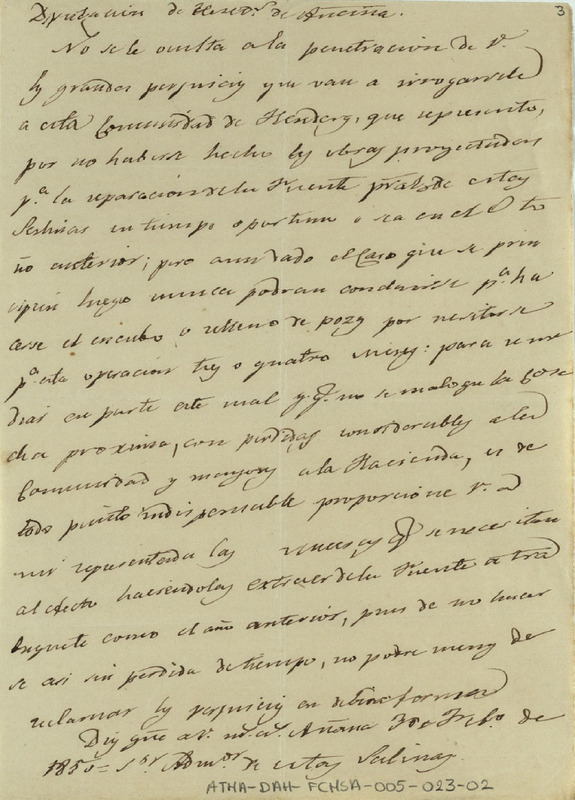 Diputacion de Hered.s de Añana.
3
No se le oculta a la penetracion de V.
los grandes perjuicios que van a irrogarsele
a esta Comunidad de Hereds, que represento,
por no haberse hecho las obras proyectadas
p.a la reparacion de la Fuente pral. de estas
Salinas en tiempo oportuno o sea en el Oto
ño anterior; pero aun dado el Caso que se prin
cipien luego nunca podran concluirse p.a ha
cerse el encubo o relleno de pozos por necesitarse
p.a esta operacion tres o quatro meses: para reme
diar en parte este mal y q.e no se malogre la Cose
cha proxima, con perdidas considerables a la
Comunidad y mayores a la Hacienda, es de
todo punto indispensable proporcione V. a
mi representada las mueras q.e se necesitan
al efecto haciendolas extraer de la Fuente a tra
buquete como el año anterior, pues de no hacer
se asi sin perdida de tiempo, no podre menos de
reclamar los perjuicios en debida forma
Dios gue a V. m.s a.s Añana 3 de Febo. de
1850 = S.or Admor de estas Salinas.
ATHA-DAH-FCHSA-005-023-02